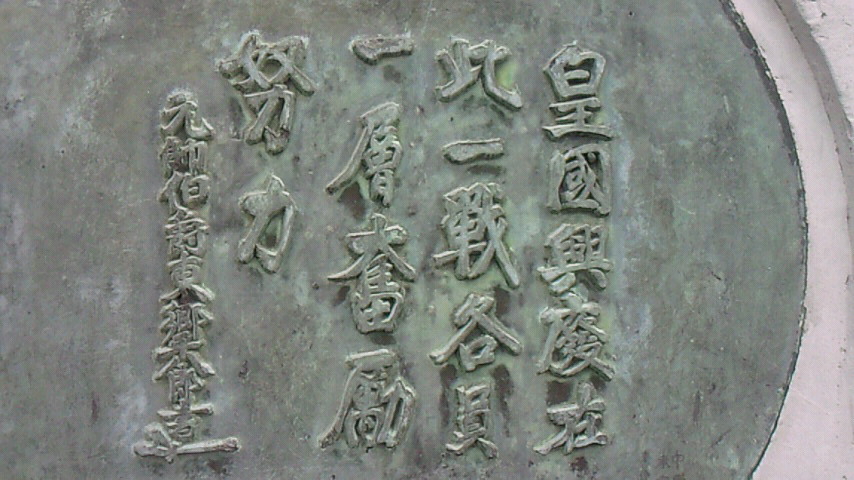 皇國興廢在
此一戰各員
一層奮勵
努力
元帥伯爵東郷平八郎書